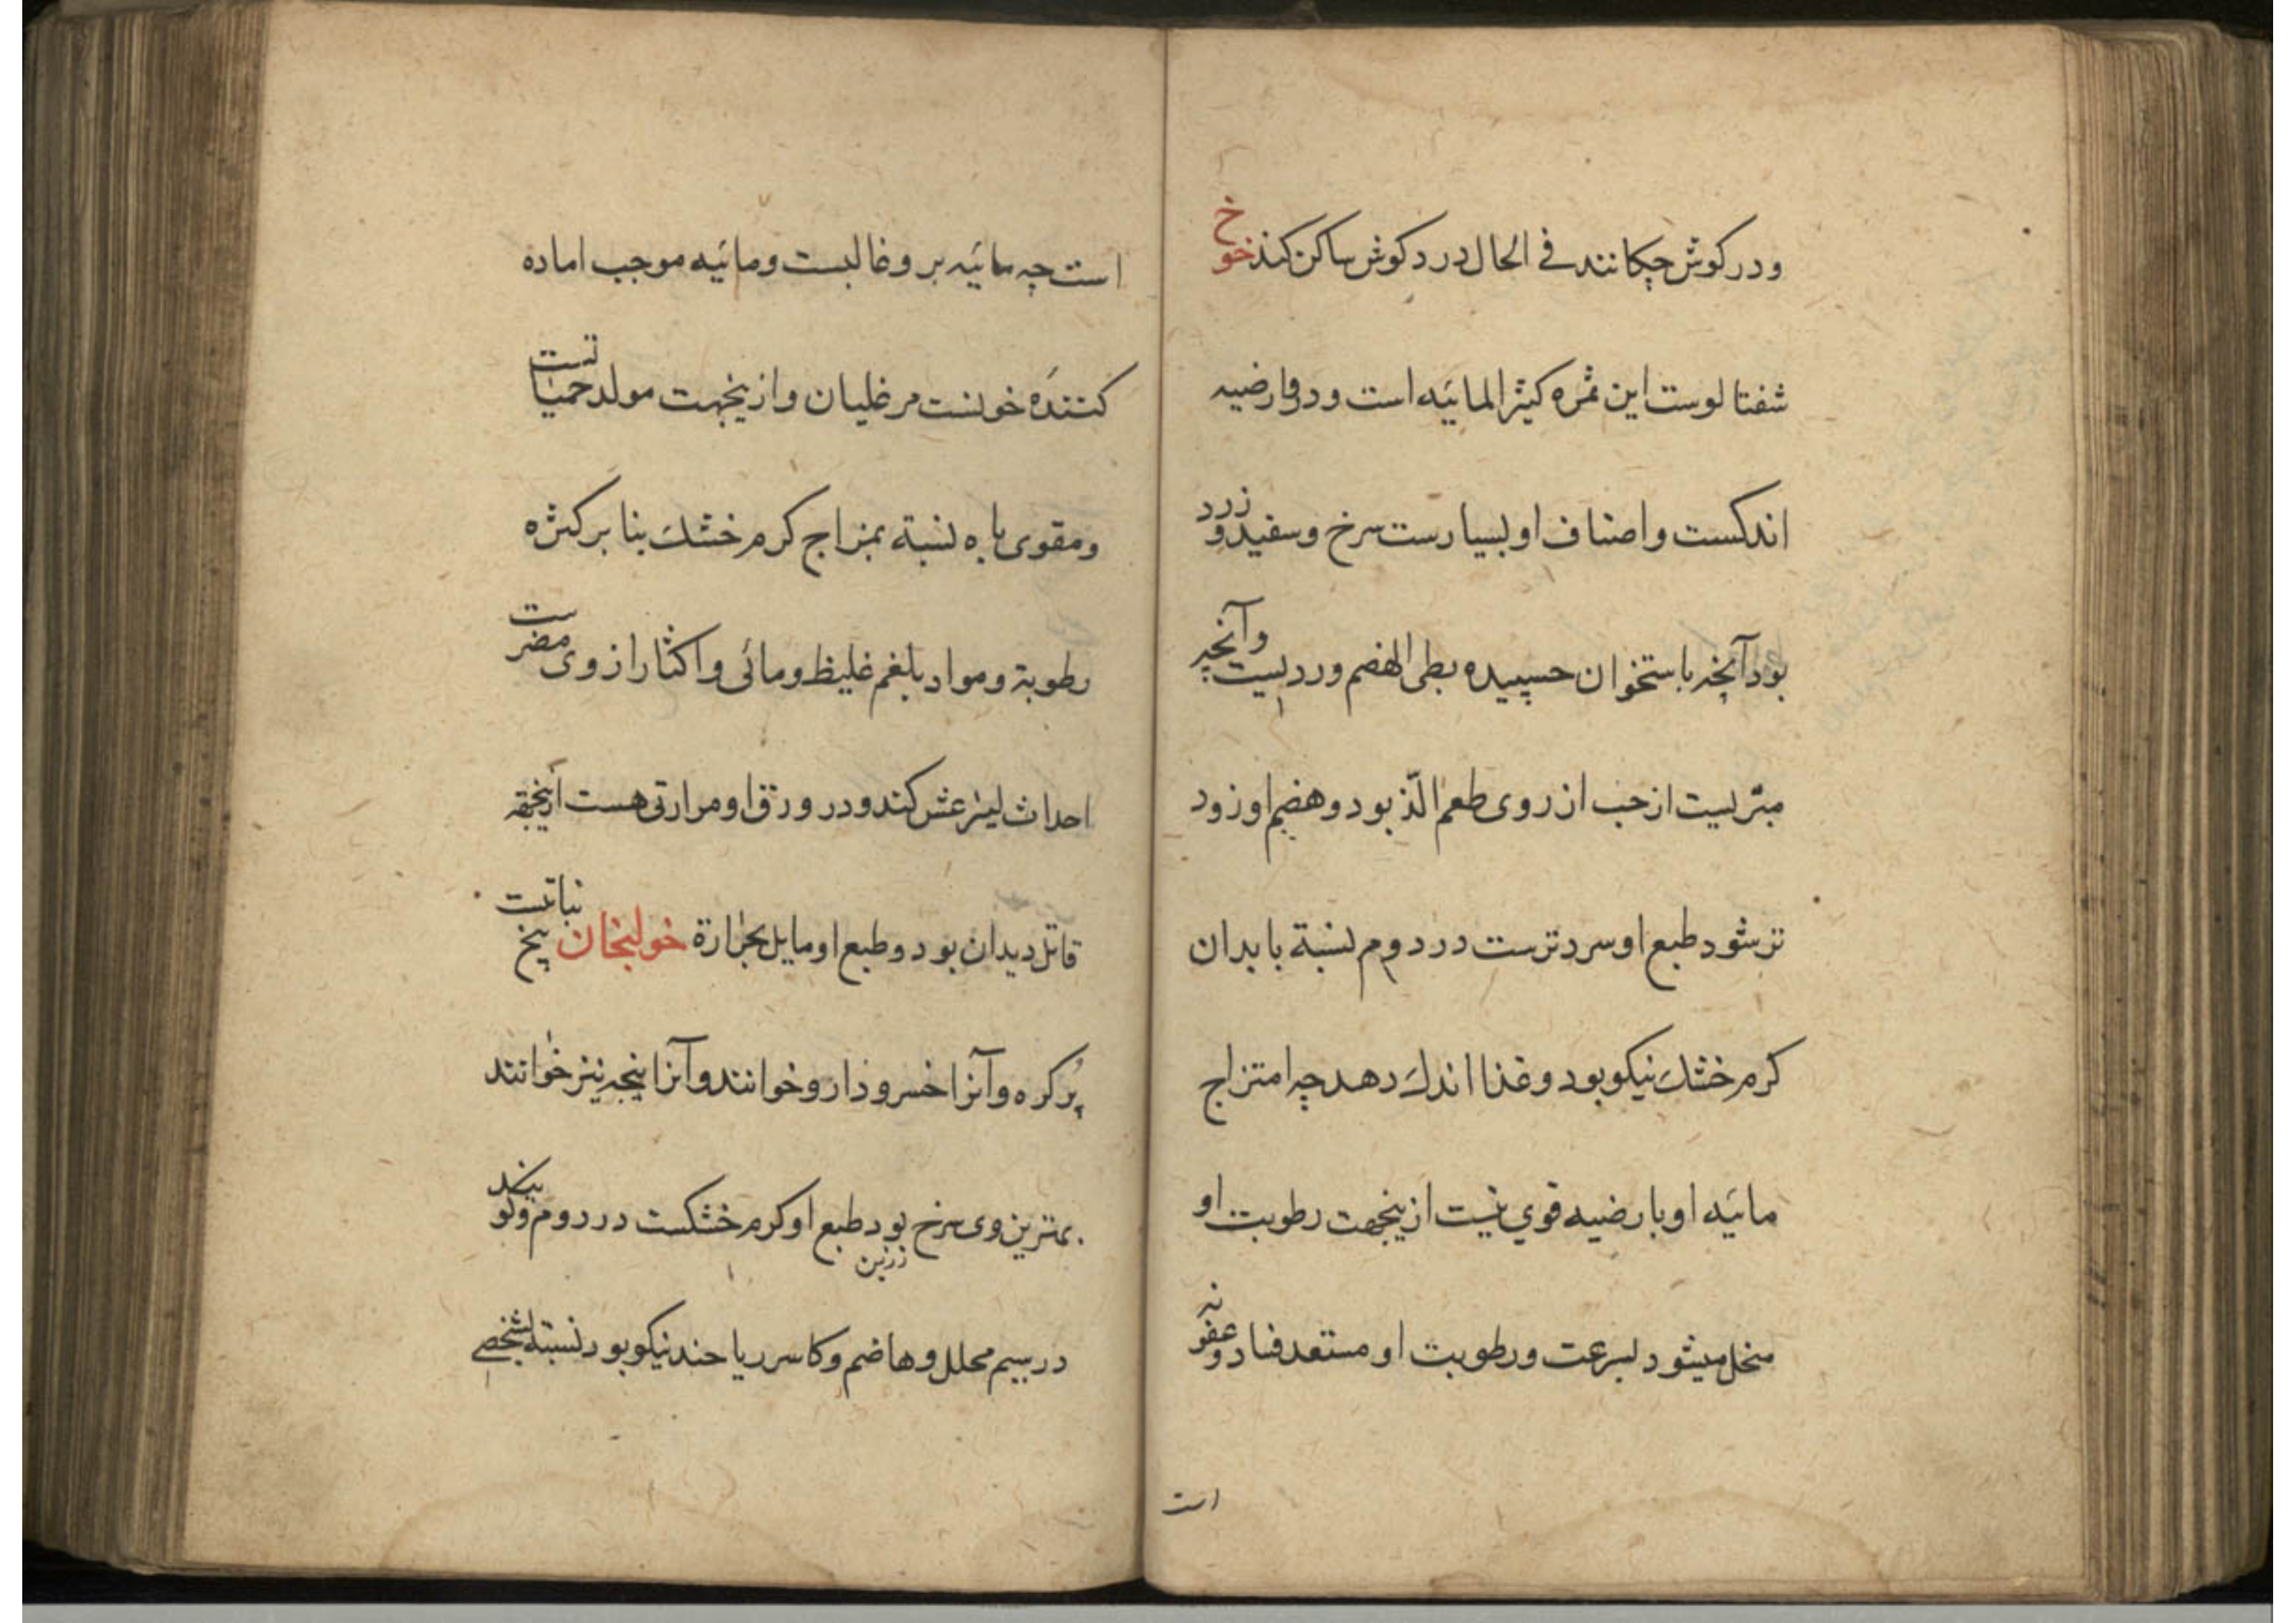 ودر كوش چكانند فى الحال درد كوش ساكن كند خوخ
شفتالوست اين ثمره كثير المائيه است ودر وى ارضيه
اندكست واصناف او بسيارست سرخ وسفيد وزرد
بود آنچه باستخوان چسپيده بطى الهضم ورديست وآنچه
مبّريست از حب از روى طعم الّذ بود وهضم او زود
تر شود طبع او سرد ترست در دوم نسبة بابدان
كرم خشك نيكو بود وغذا اندك دهد چه امتزاج
مائيه او بارضيه قوي نيست ازينجهت رطوبت او
منحل ميشود بسرعت ورطوبت او مستعد فساد وعفونه
است
است چه مائيه برو غالبست ومائيه موجب اماده
كننده خونست مر غليان وازينجهت مولد حمياتست
ومقوى باه نسبة بمزاج كرم خشك بنا بر كثره
رطوبة ومواد بلغم غليظ ومائى واكثار از وى مضرست
احداث ليثرغش كند ودر ورق او مرارتى هست ازينجهة
قاتل ديدان بود وطبع او مايل بحرارة خولنجان بيخ نباتست
پر كره وآنرا خسرودارو خوانند وآنرا نيز خوانند
بهترين وى سرخ رزين بود طبع او كرم خشكست در دوم وكويند
در سيم محلل وهاضم وكاسر رياحند نيكو بود نسبة بشخصى